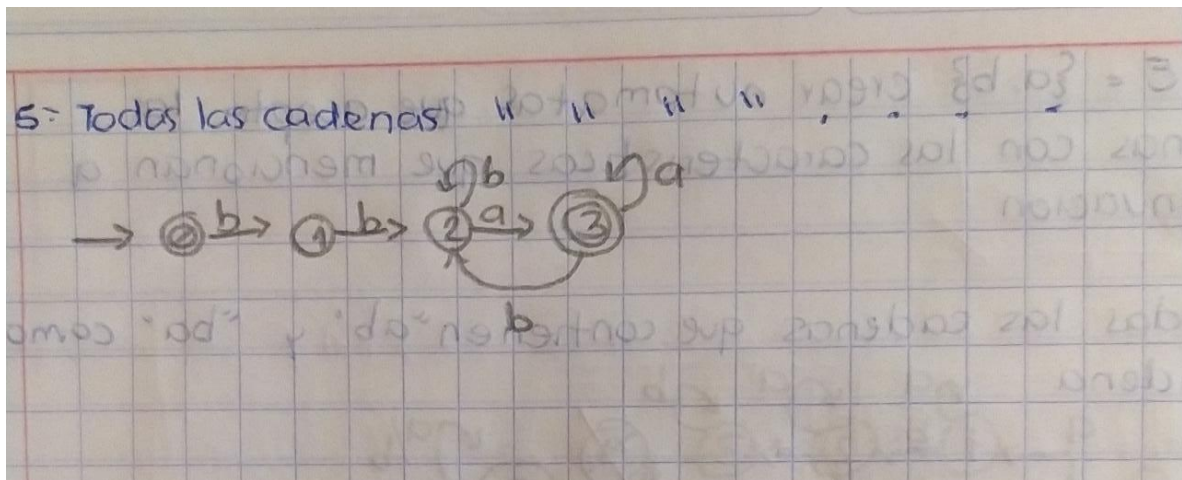 5= Todas las cadenas " " " " . . . .
b a
0 b 1 b 2 a 3
b